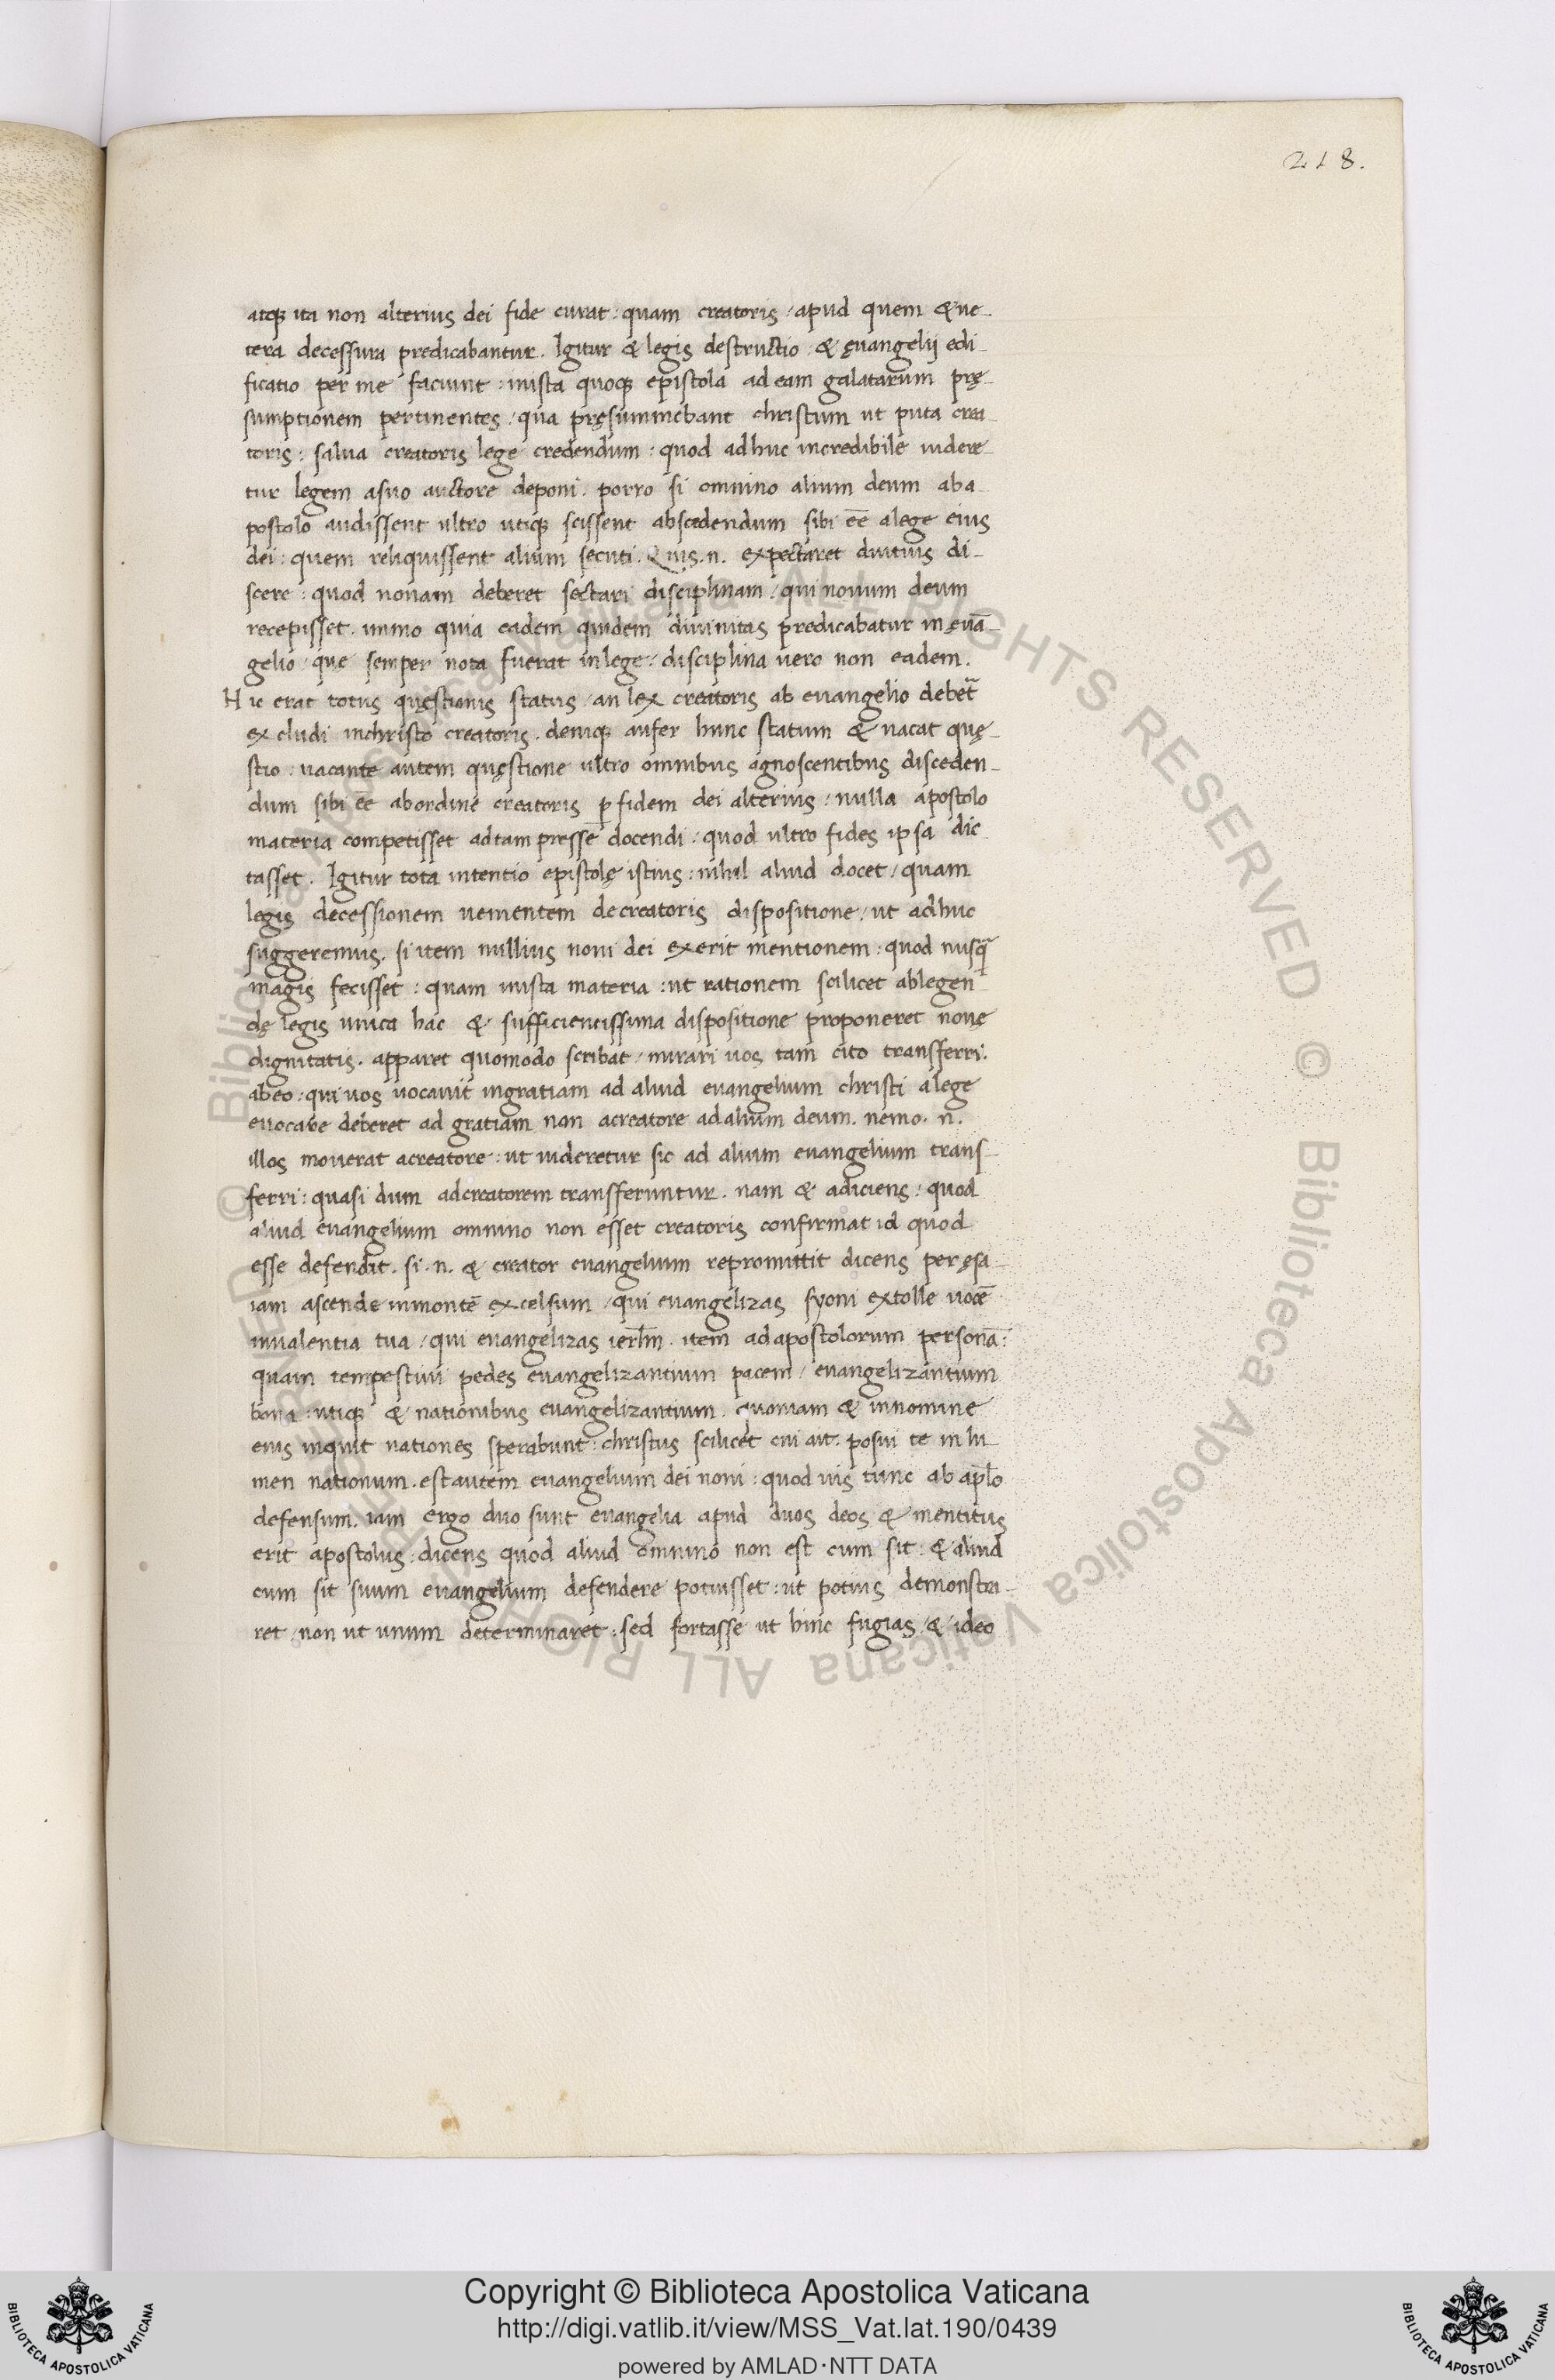 218.
atq; ita non alterius dei fide curat : quam creatoris / apud quem & ue-
tera decessura predicabantur. Igitur & legis destructio & ęuangelij edi-
ficatio per me faciunt : inista quoq; epistola ad eam galatarum prę-
sumptionem pertinentes / qua pręsummebant christum ut puta crea-
toris : salua creatoris lege credendum : quod adhuc incredibile uidere-
tur legem asuo auctore deponi. porro si omnino alium deum aba-
postolo audissent ultro utiq; scissent abscedendum sibi eē alege eius
dei : quem reliquissent alium secuti. Quis .n. expectaret diutius di-
scere : quod nouam deberet sectari disciplinam / qui nouum deum
recepisset. immo quia eadem quidem diuinitas predicabatur in ęuā-
gelio / que semper nota fuerat inlege / disciplina uero non eadem.
Hic erat totus quęstionis status / an lex creatoris ab euangelio debet̄
excludi inchristo creatoris. deniq; aufer hunc statum & uacat quę-
stio : uacante autem quęstione ultro omnibus agnoscentibus disceden-
dum sibi eē abordine creatoris ꝑ fidem dei alterius / nulla apostolo
materia competisset adtam presse docendi : quod ultro fides ipsa dic
tasset. Igitur tota intentio epistolę istius : nihil aliud docet / quam
legis decessionem uenientem decreatoris dispositione / ut adhuc
suggeremus. si item nullius noui dei exerit mentionem : quod nusq̄
magis fecisset : quam inista materia : ut rationem scilicet ablegen-
dę legis unica hac & sufficientissima dispositione proponeret nouę
dignitatis. apparet quomodo scribat / mirari uos tam cito transferri
abeo : qui uos uocauit ingratiam ad aliud euangelium christi alege
euocare deberet ad gratiam non acreatore adalium deum. nemo .n.
illos mouerat acreatore : ut uideretur sic ad alium euangelium trans-
ferri : quasi dum adcreatorem transferuntur. nam & adiciens : quod
aliud euangelium omnino non esset creatoris confirmat id quod
esse defendit. si .n. & creator euangelium repromittit dicens per ęsa-
iam ascende inmontē excelsum / qui euangelizas syoni extolle uocē
inualentia tua / qui euangelizas ierl̄m. item adapostolorum personā:
quam tempestiui pedes euangelizantium pacem / euangelizantium
bona : utiq; & nationibus euangelizantium. quoniam & innomine
eius inquit nationes sperabunt : christus scilicet cui ait. posui te in lu-
men nationum. est autem euangelium dei noui : quod uis tunc ab apl̄o
defensum. iam ergo duo sunt euangelia apud duos deos & mentitus
erit apostolus : dicens quod aliud omnino non est cum sit : & aliud
cum sit suum euangelium defendere potuisset : ut potius demonstra-
ret / non ut unum determinaret : sed fortasse ut hinc fugias / & ideo
© Biblioteca Apostolica Vaticana ALL RIGHTS RESERVED © Biblioteca Apostolica Vaticana ALL RIGHTS RESERVED
Copyright © Biblioteca Apostolica Vaticana
http://digi.vatlib.it/view/MSS_Vat.lat.190/0439
powered by AMLAD·NTT DATA
BIBLIOTECA APOSTOLICA VATICANA
BIBLIOTECA APOSTOLICA VATICANA